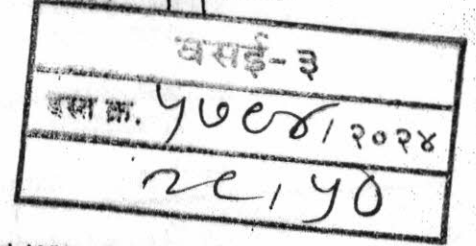 वसई-३
दस्त क्र. ५७९४/२०२४
२९/५०